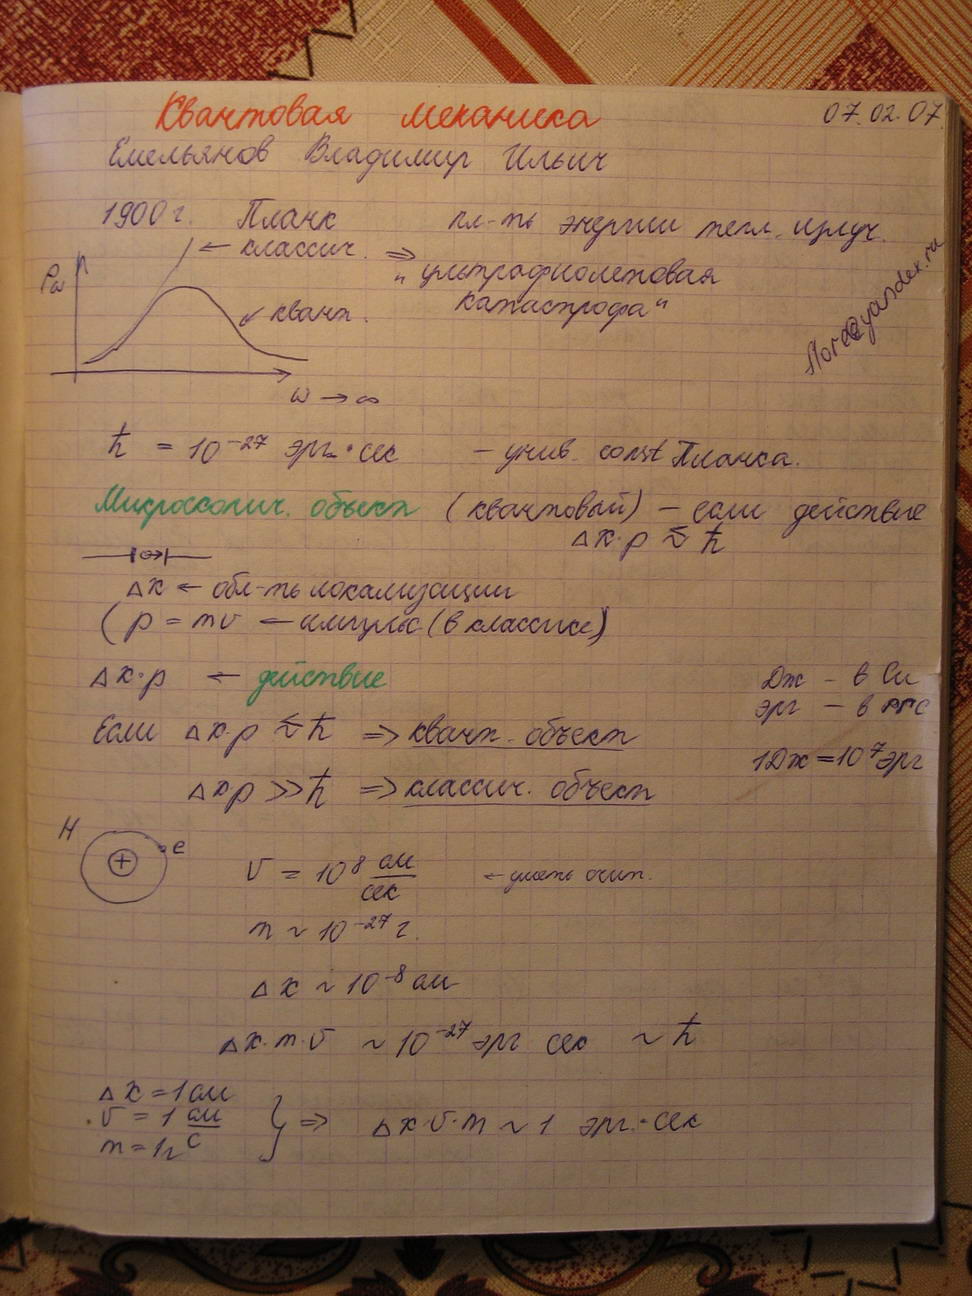 Квантовая механика
07.02.07.
Емельянов Владимир Ильич
1900г. Планк пл-ть энергии тепл. излуч.
ρω ← классич. ⇒ „ультрафиолетовая
катастрофа"
квант.
ω → ∞
ħ = 10⁻²⁷ эрг·сек – унив. const Планка.
Микроскопич. объект (квантовый) – если действие
Δx·p ≲ ħ
Δx ← обл-ть локализации
(p = mv ← импульс (в классике)
Δx·p ← действие
Дж – в Си
эрг – в СГС
Если Δx·p ≲ ħ ⇒ квант. объект
1Дж = 10⁷ эрг
Δxp >> ħ ⇒ классич. объект
H
+
e
v = 10⁸ см/сек ← уметь счит.
m ~ 10⁻²⁷ г.
Δx ~ 10⁻⁸ см
Δx·m·v ~ 10⁻²⁷ эрг сек ~ ħ
Δx = 1 см
v = 1 см/с } ⇒ Δx·v·m ~ 1 эрг.·сек
m = 1г